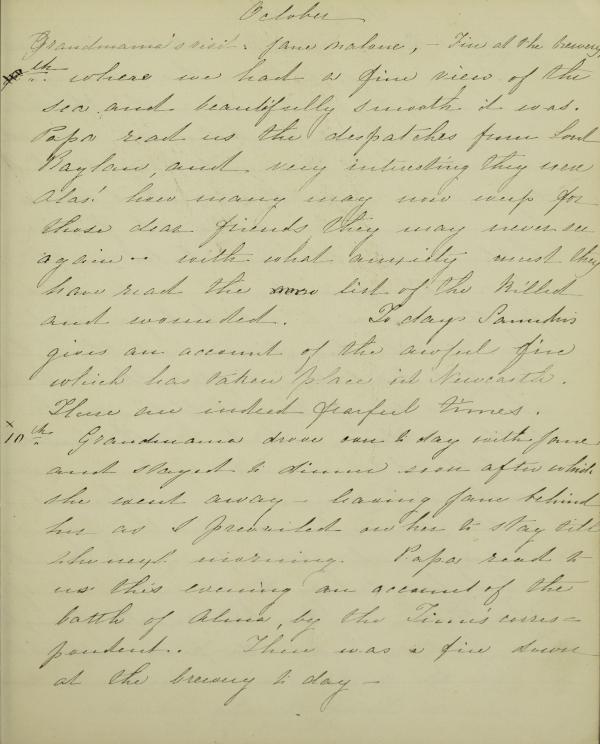 October
Grandmama's visit. Jane Malone, – Fire at the brewery,
th where we had a fine view of the
sea and beautifully smooth it was.
Papa read us the despatches from Lord
Raglan, and very interesting they were
Alas! how many may now weep for
those dear friends they may never see
again – with what anxiety must they
have read the list of the Killed
and wounded. To days Saunders
gives an account of the awful fire
which has taken place in Newcastle.
These are indeed fearful times.
x10th Grandmama drove over to day with Jane
and stayed to dinner soon after which
she went away – leaving Jane behind
her as I prevailed on her to stay till
the next morning. Papa read to
us this evening an account of the
battle of Alma, by the Times corres=
pondent. . There was a fire down
at the brewery to day –